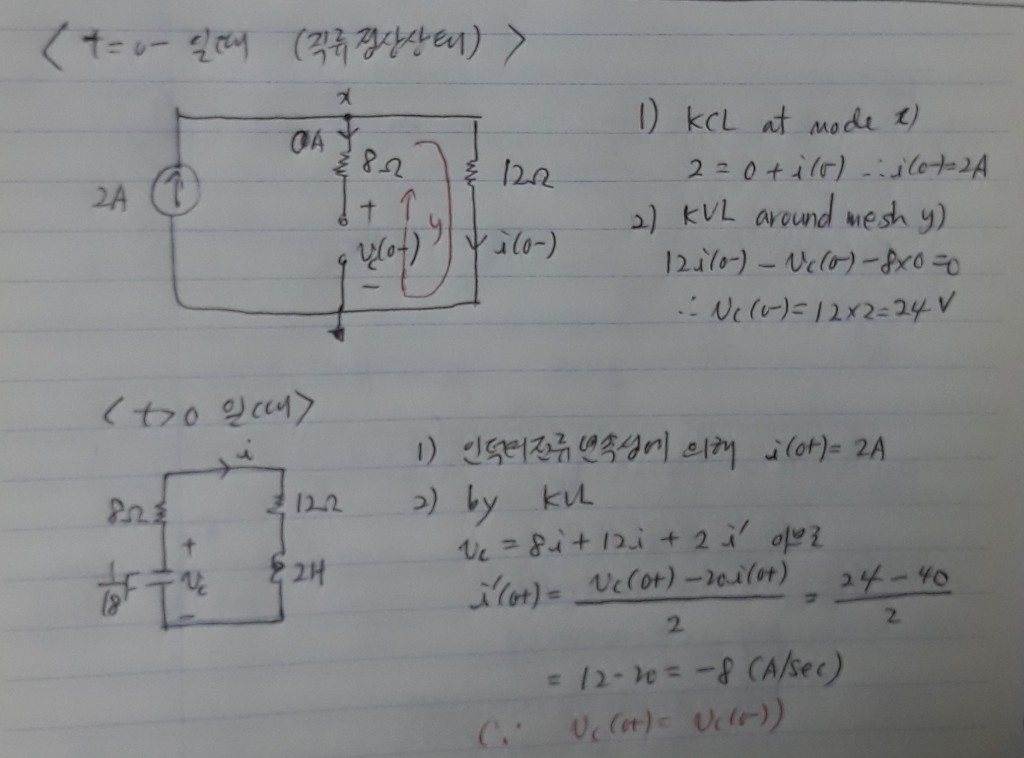 < t=0- 일때 (직류정상상태) >
x
0A
8Ω
12Ω
2A
+
Vc(0-)
-
y
i(0-)
1) KCL at node x)
2 = 0 + i(0-) ∴ i(0-)=2A
2) KVL around mesh y)
12i(0-) - Vc(0-) - 8×0 = 0
∴ Vc(0-) = 12×2 = 24 V
< t>0 일때 >
i
8Ω
12Ω
+
1/18 F
Vc
2H
-
1) 인덕터전류 연속성에 의해 i(0+) = 2A
2) by KVL
Vc = 8i + 12i + 2i' 이므로
i'(0+) = (Vc(0+) - 20i(0+))/2 = (24 - 40)/2
= 12 - 20 = -8 (A/sec)
(∵ Vc(0+) = Vc(0-))